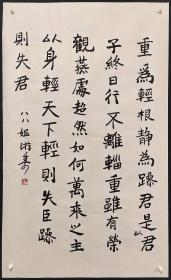 重為輕根静為躁君是以君
子終日行不離輜重雖有榮
觀燕處超然如何萬乘之主
以身輕天下輕則失臣躁
則失君
八八